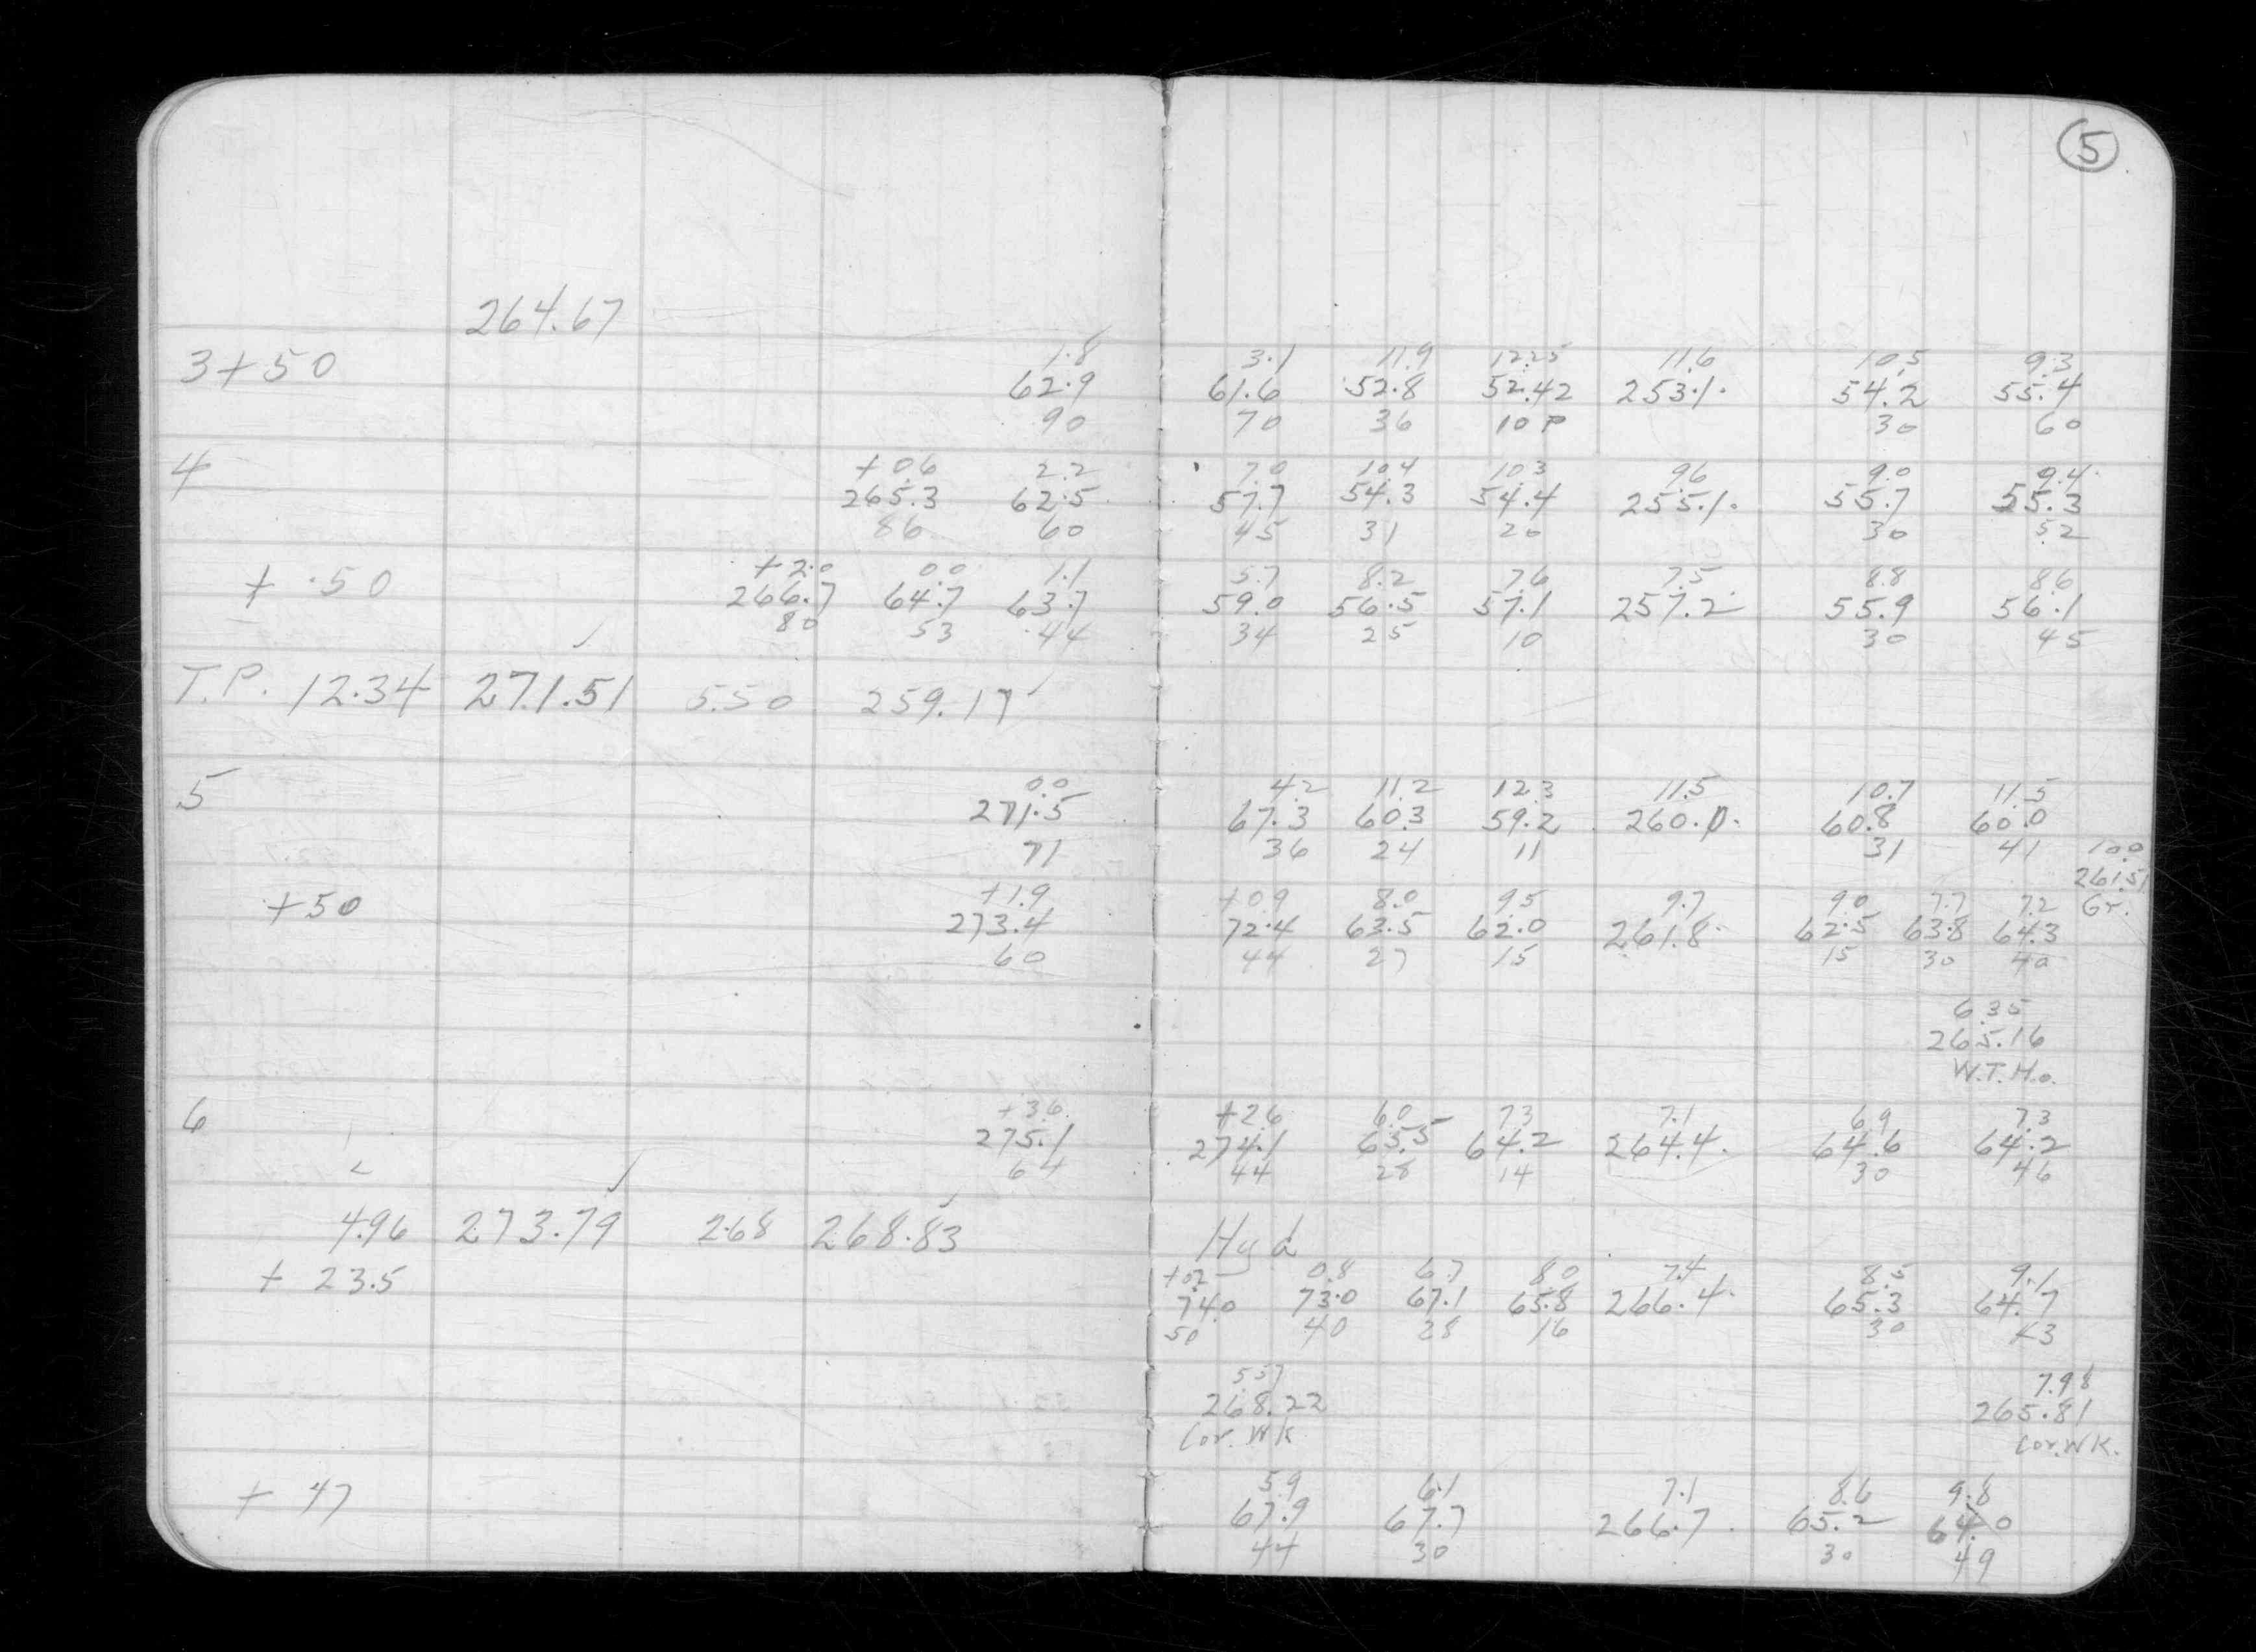 5
264.67
1.8 3.1 11.9 12.25 11.6 10.5 9.3
3+50 62.9 61.6 52.8 52.42 253.1. 54.2 55.4
90 70 36 10 P 30 60
+0.6 2.2 7.0 10.4 10.3 9.6 9.0 9.4
4 265.3 62.5 57.7 54.3 54.4 255.1. 55.7 55.3
86 60 45 31 20 30 52
+2.0 0.0 1.1 5.7 8.2 7.6 7.5 8.8 8.6
+.50 266.7 64.7 63.7 59.0 56.5 57.1 257.2 55.9 56.1
80 53 44 34 25 10 30 45
T.P. 12.34 271.51 5.50 259.17
0.0 4.2 11.2 12.3 11.5 10.7 11.5
5 271.5 67.3 60.3 59.2 260.0. 60.8 60.0
71 36 24 11 31 41 10.0
261.51
+1.9 +0.9 8.0 9.5 9.7 9.0 7.7 7.2 Gr.
+50 273.4 72.4 63.5 62.0 261.8. 62.5 63.8 64.3
60 44 27 15 15 30 40
6.35
265.16
W.T.Ho.
+3.6 +2.6 6.0 7.3 7.1 6.9 7.3
6 275.1 274.1 65.5 64.2 264.4. 64.6 64.2
64 44 28 14 30 46
4.96 273.79 2.68 268.83 Hyd
+0.2 0.8 6.7 8.0 7.4 8.5 9.1
+ 23.5 74.0 73.0 67.1 65.8 266.4. 65.3 64.7
50 40 28 16 30 43
5.57 7.98
268.22 265.81
Cor. WK Cor. WK.
5.9 6.1 7.1 8.6 9.8
+ 47 67.9 67.7 266.7. 65.2 64.0
44 30 30 49